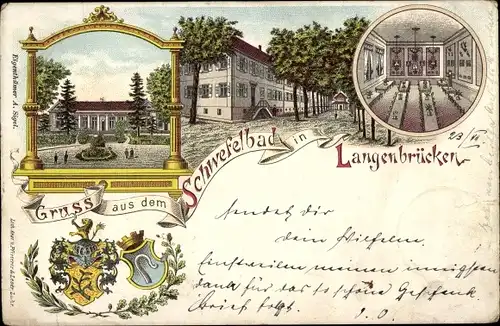 Eigenthümer A. Sigel.
Gruss aus dem Schwefelbad in Langenbrücken.
23/VII
sendet dir
dein Wilhelm.
Einstweilen meinen innigsten
Dank für das so schöne Geschenk.
Brief folgt.